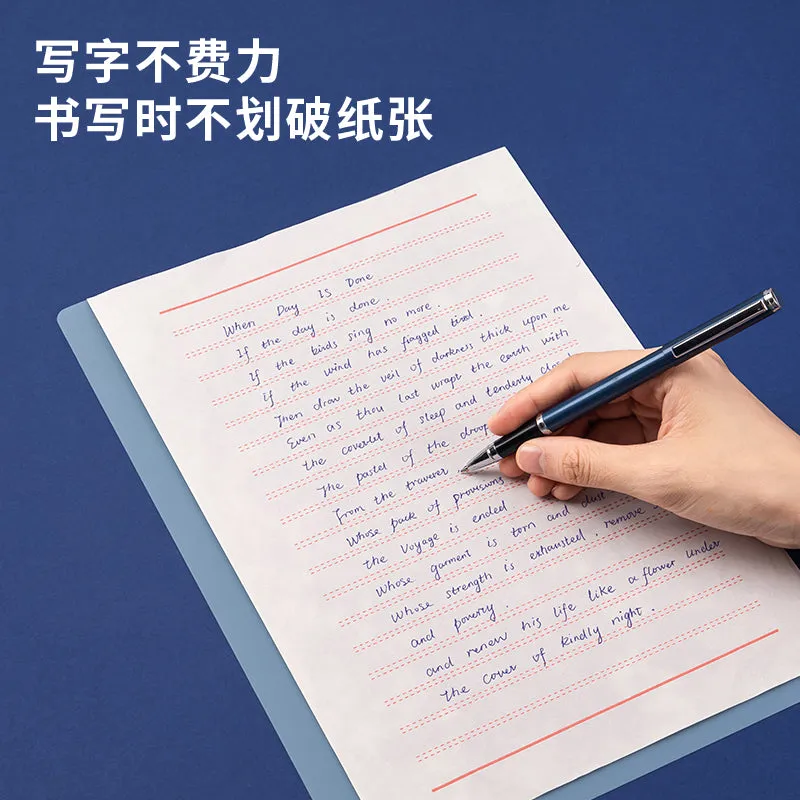 写字不费力
书写时不划破纸张
When Day Is Done
If the day is done,
If the birds sing no more.
If the wind has fiagged tired.
Then draw the veil of darkness thick upon me
Even as thou last wrapt the earth with
the coverlet of sleep and tenderly closed
The pastel of the droop
From the traverer
Whose pack of provisions
the Voyage is ended
Whose garment is torn and dust
Whose strength is exhausted, remove
and poverty.
and renew his life like a flower under
the cover of kindly night.